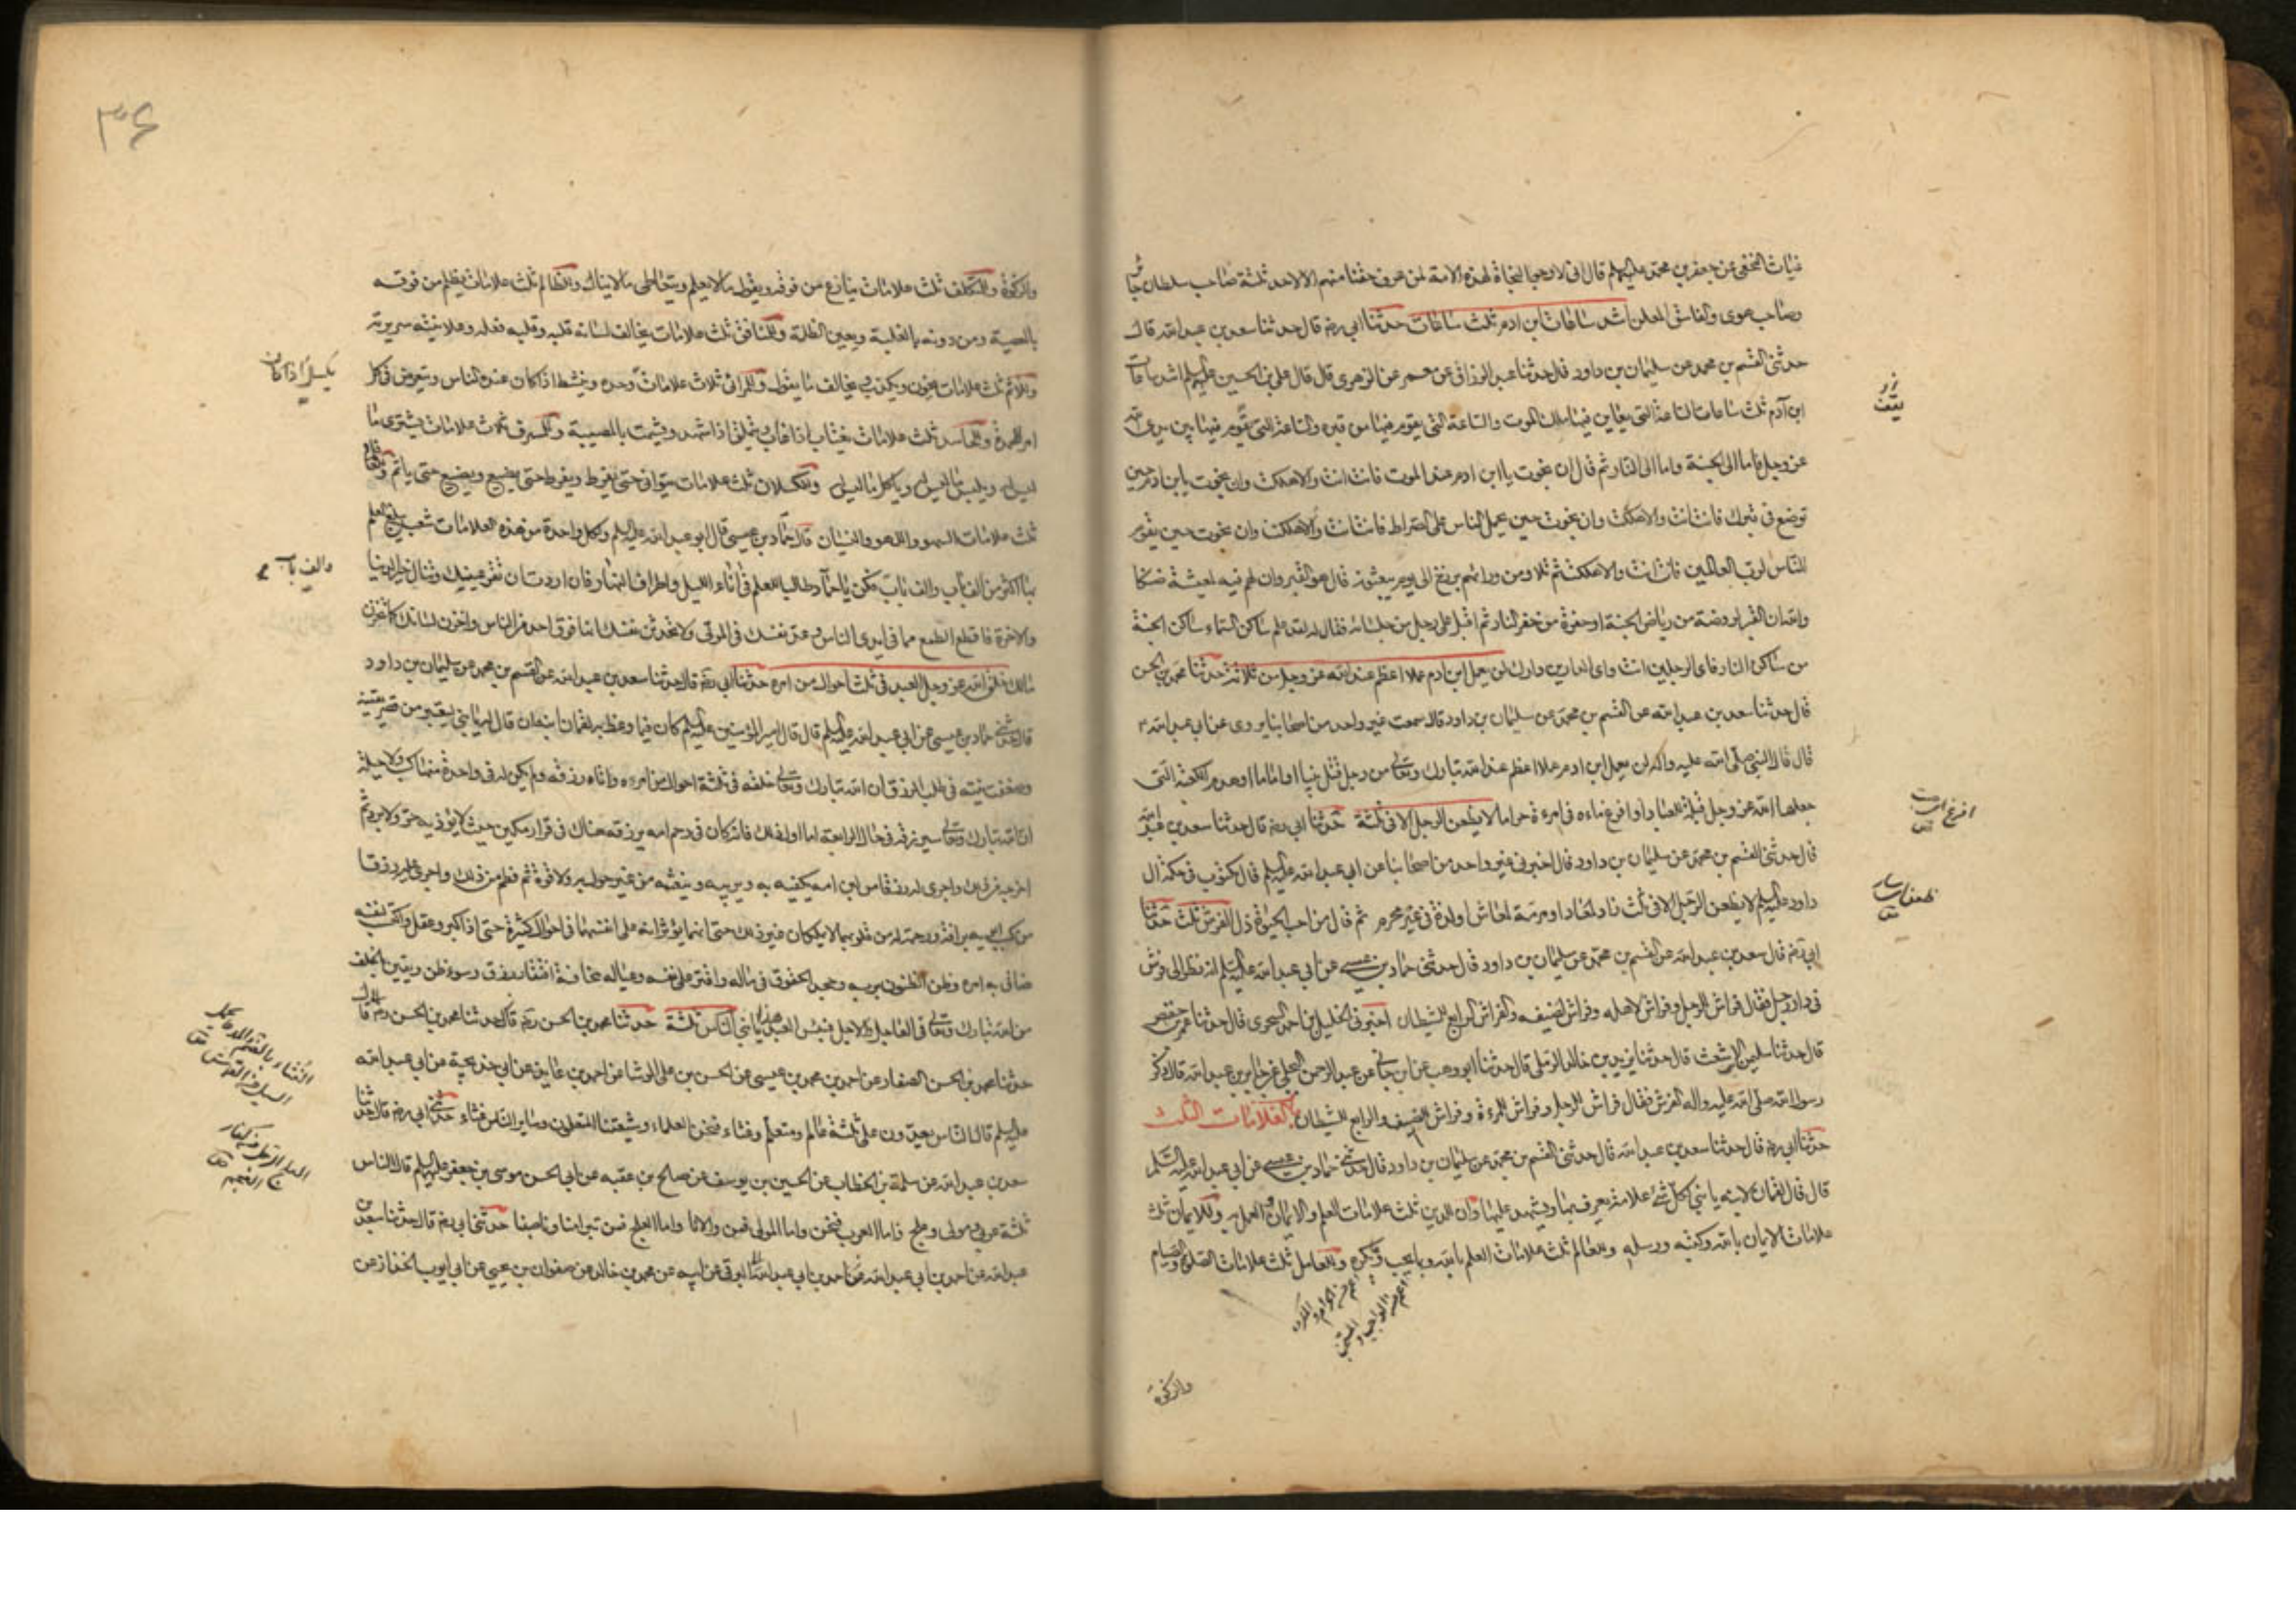 غياث النخعي عن جعفر بن محمد عليهما السلم قال اني لارجو النجاة لهذه الامة لمن عرف حقنا منهم الا لاحد ثلثة صاحب سلطان جائر
وصاحب هوى والفاسق المعلن اشد ساعات ابن ادم ثلث ساعات حدثنا ابي رضه قال حدثنا سعد بن عبد الله قال
حدثني القسم بن محمد عن سليمان بن داود قال حدثنا عبد الرزاق عن معمر عن الزهري قال قال علي بن الحسين عليهما السلم اشد ساعات
ابن آدم ثلث ساعات الساعة التي يعاين فيها ملك الموت والساعة التي يقوم فيها من قبره والساعة التي يقوم فيها بين يدي الله
عز وجل فاما الى الجنة واما الى النار ثم قال ان نجوت يا ابن ادم عند الموت فانت انت والا هلكت وان نجوت يابن ادم حين
توضع في قبرك فانت انت والا هلكت وان نجوت حين يحمل الناس على الصراط فانت انت والا هلكت وان نجوت حين يقوم
الناس لرب العالمين فانت انت والا هلكت ثم تلا ومن ورائهم برزخ الى يوم يبعثون قال هو القبر وان لهم فيه لمعيشة ضنكا
والله ان القبر لروضة من رياض الجنة او حفرة من حفر النار ثم اقبل على رجل من جلسائه فقال له لقد علم ساكن السماء ساكن الجنة
من ساكن النار فاي الرجلين انت واي الدارين دارك لن يعمل ابن ادم عملا اعظم عند الله عز وجل من ثلاثة حدثنا محمد بن الحسن
قال حدثنا سعد بن عبد الله عن القسم بن محمد عن سليمان بن داود قال سمعت غير واحد من اصحابنا يروى عن ابي عبد الله
قال قال النبي صلى الله عليه واله لن يعمل ابن ادم عملا اعظم عند الله تبارك وتعالى من رجل قتل نبيا او اماما او هدم الكعبة التي
جعلها الله عز وجل قبلة للعباد او افرغ ماءه في امرءة حراما لا يظعن الرجل الا في ثلثة حدثنا ابي رضه قال حدثنا سعد بن عبد الله
قال حدثني القسم بن محمد عن سليمان بن داود قال اخبرني غير واحد من اصحابنا عن ابي عبد الله عليه السلم قال مكتوب في حكمة ال
داود عليه السلم لا يظعن الرجل الا في ثلث زاد لمعاد او مرمة لمعاش او لذة في غير محرم ثم قال من احب الحيوة ذل الفرش ثلث حدثنا
ابي رضه قال سعد بن عبد الله عن القسم بن محمد عن سليمان بن داود قال حدثني حماد بن عيسى عن ابي عبد الله عليه السلم انه نظر الى فرش
في دار رجل فقال فراش للرجل وفراش لاهله وفراش لضيفه والفراش الرابع للشيطان اخبرني الخليل بن احمد السجزى قال حدثنا عمر بن حفص
قال حدثنا سليمن الاشعث قال حدثنا يزيد بن خالد الرملي قال حدثنا ابو وهب عن ابن هاني عن عبد الرحمن البجلي عن جابر بن عبد الله قال ذكر
رسول الله صلى الله عليه واله الفرش فقال فراش للرجل وفراش للمرءة وفراش للضيف والرابع للشيطان العلامات الثلث
حدثنا ابي رضه قال حدثنا سعد بن عبد الله قال حدثني القسم بن محمد عن سليمان بن داود قال حدثني حماد بن عيسى عن ابي عبد الله عليه السلم
قال قال لقمان لابنه يا بني لكل شئ علامة يعرف بها ويشهد عليها وان للدين ثلث علامات العلم والايمان والعمل به وللايمان ثلث
علامات الايمان بالله وكتبه ورسله وللعالم ثلث علامات العلم بالله وبما يحب ويكره وللعامل ثلث علامات الصلوة والصيام
والزكوة
افرغ
٣٤
والزكوة وللمتكلف ثلث علامات ينازع من فوقه ويقول ما لا يعلم ويتعاطى ما لا ينال وللظالم ثلث علامات يظلم من فوقه
بالمعصية ومن دونه بالغلبة ويعين الظلمة وللمنافق ثلث علامات يخالف لسانه قلبه وقلبه فعله وعلانيته سريرته
وللاثم ثلث علامات يخون ويكذب ويخالف ما يقول وللمرائي ثلاث علامات وحده وينشط اذا كان عنده الناس ويتعرض في كل
امر للمحمدة وللحاسد ثلث علامات يغتاب اذا غاب ويتملق اذا شهد ويشمت بالمصيبة وللمسرف ثلاث علامات يشترى ما
ليس له ويلبس ما ليس له وياكل ما ليس له وللكسلان ثلث علامات يتوانى حتى يفرط ويفرط حتى يضيع ويضيع حتى ياثم وللغافل
ثلث علامات السهو واللهو والنسيان قال حماد بن عيسى قال ابو عبد الله عليه السلم ولكل واحدة من هذه العلامات شعب يبلغ العلم
بها اكثر من الف باب والف باب فكن يا حماد طالبا للعلم في اناء الليل واطراف النهار فان اردت ان تقر عينيك وتنال خير الدنيا
والاخرة فاقطع الطمع مما في ايدى الناس وعد نفسك في الموتى ولا تحدثن نفسك انها فوق احد من الناس واخزن لسانك كما تخزن
مالك خلق الله عز وجل العبد في ثلث احوال من امره حدثنا ابي رضه قال حدثنا سعد بن عبد الله عن القسم بن محمد عن سليمان بن داود
قال حدثني حماد بن عيسى عن ابي عبد الله عليه السلم قال قال امير المؤمنين عليه السلم كان فيما وعظ به لقمان ابنه ان قال له يا بني ليعتبر من قصر يقينه
وضعفت نيته في طلب الرزق ان الله تبارك وتعالى خلقه في ثلثة احوال من امره واتاه رزقه ولم يكن له في واحدة منها كسب ولا حيلة
ان الله تبارك وتعالى سيرزقه في حال الرابعة اما اول ذلك فانه كان في رحم امه يرزقه هناك في قرار مكين حيث لا يؤذيه حر ولا برد ثم
اخرجه من ذلك واجرى له رزقا من لبن امه يكفيه به ويربيه وينعشه من غير حول به ولا قوة ثم فطم من ذلك واجرى له رزقا
من كسب ابويه برافة ورحمة له من قلوبهما لا يملكان غير ذلك حتى انهما يؤثرانه على انفسهما في احوال كثيرة حتى اذا كبر وعقل واكتسب لنفسه
ضاق به امره وظن الظنون بربه وجحد الحقوق في ماله واقتر على نفسه وعياله مخافة اقتار رزق وسوء ظن ويقين بالخلف
من الله تبارك وتعالى في العاجل والاجل فبئس العبد هذا يا بني الناس ثلثة حدثنا محمد بن الحسن رضه قال
حدثنا محمد بن الحسن الصفار عن احمد بن محمد بن عيسى عن الحسن بن علي الوشا عن احمد بن عايذ عن ابي خديجة عن ابي عبد الله
عليه السلم قال الناس يغدون على ثلثة عالم ومتعلم وغثاء فنحن العلماء وشيعتنا المتعلمون وساير الناس غثاء حدثني ابي رضه قال حدثنا
سعد بن عبد الله عن سلمة بن الخطاب عن الحسين بن يوسف عن صالح بن عقبه عن ابي الحسن موسى بن جعفر عليهما السلم قال الناس
ثلثة عربي ومولى وعلج فاما العرب فنحن واما المولى فمن والانا واما العلج فمن تبرا منا وناصبنا حدثني ابي رضه قال حدثنا سعد بن
عبد الله عن احمد بن ابي عبد الله البرقي عن ابيه عن محمد بن خالد عن صفوان بن يحيى عن ابي ايوب الخزاز عن
يكسل اذا كان
والف باب